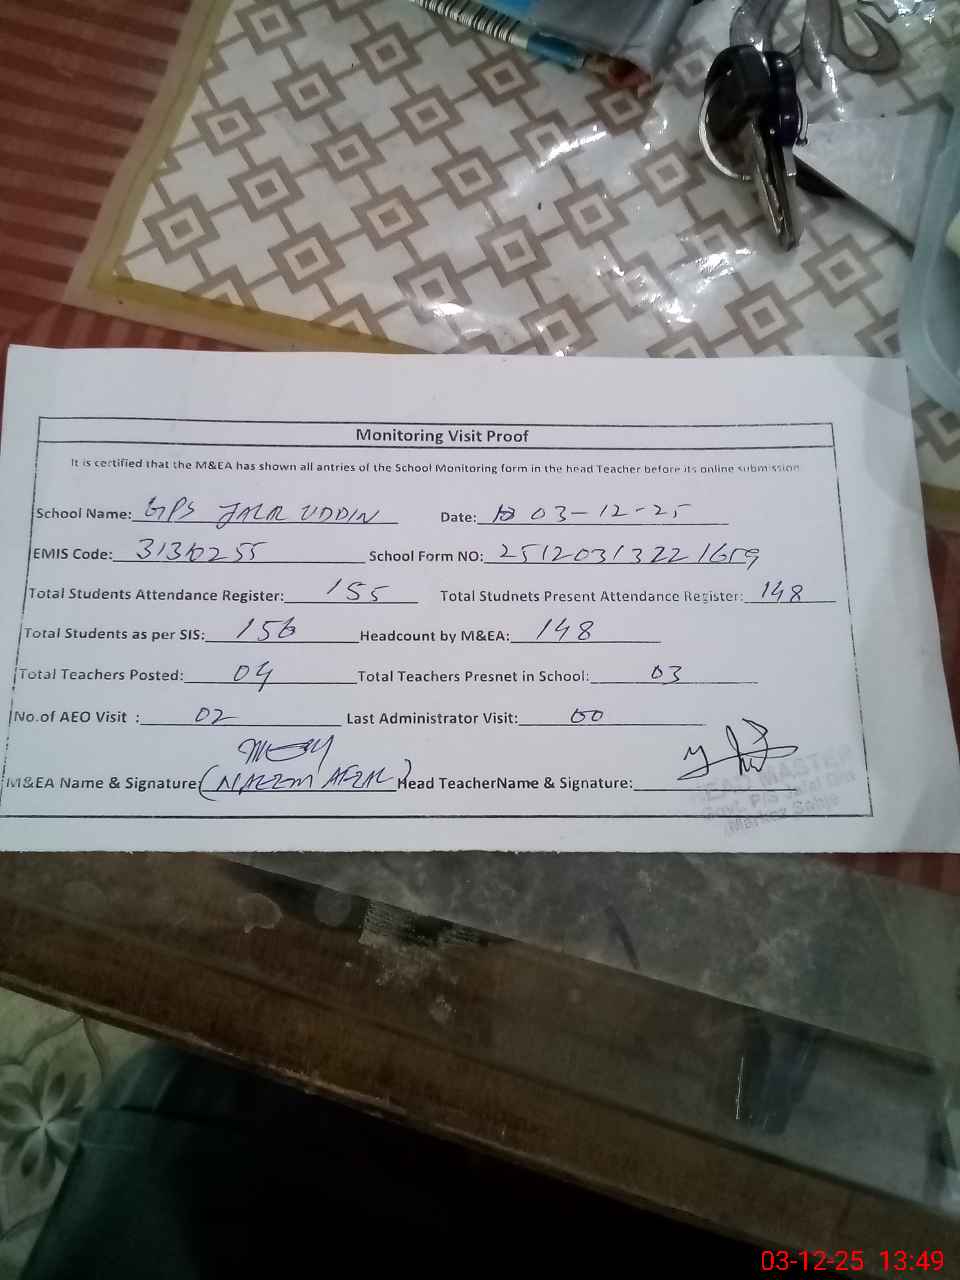 Monitoring Visit Proof
It is certified that the M&EA has shown all antries of the School Monitoring form in the head Teacher before its online submission
School Name: GPS JALAL UDDIN Date: 03-12-25
EMIS Code: 31310255 School Form NO: 251203132221659
Total Students Attendance Register: 155 Total Studnets Present Attendance Register: 148
Total Students as per SIS: 156 Headcount by M&EA: 148
Total Teachers Posted: 04 Total Teachers Presnet in School: 03
No.of AEO Visit : 02 Last Administrator Visit: 00
M&EA Name & Signature (NAEEM AFZAL) Head TeacherName & Signature:
HEAD MASTER
Govt. P/S Jalal Din
03-12-25 13:49